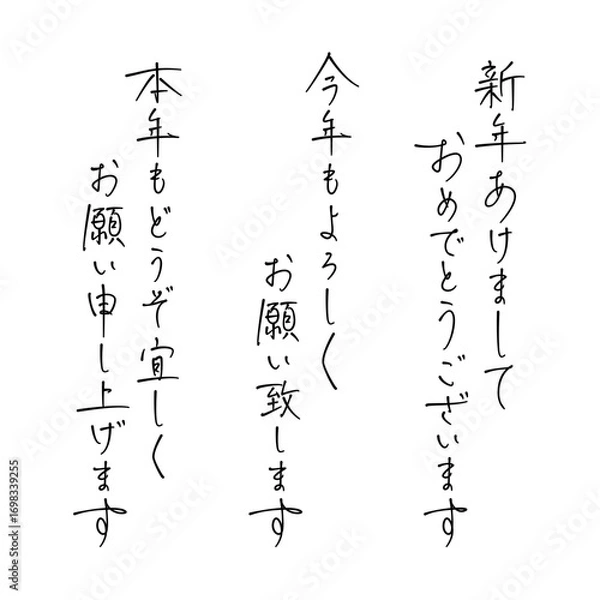 新年あけまして
おめでとうございます
今年もよろしく
お願い致します
本年もどうぞ宜しく
お願い申し上げます
Adobe Stock | #1698339255